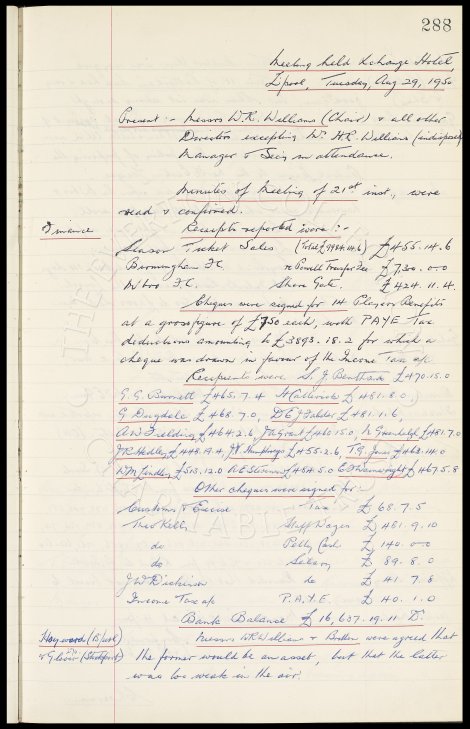 288
Meeting held Xchange Hotel,
L'pool, Tuesday, Aug 29, 1950
Present :- Messrs W.R. Williams (Chair) & all other
Directors excepting Mr H.R. Williams (indisposed)
Manager & Secy in attendance.
Minutes of Meeting of 21st inst, were
read & confirmed.
Finance
Receipts reported were :-
Season Ticket Sales (Total £9984.14.6) £455.14.6
Birmingham F.C. re Powell Transfer Fee £7,30.0.0
M'bro F.C. Share Gate. £424.11.4.
Cheques were signed for 14 Players Benefits
at a gross figure of £750 each, with PAYE Tax
deductions amounting to £3893.18.2 for which a
cheque was drawn in favour of the Income Tax a/c.
Recipients were S. J. Bentham £470.15.0
G. G. Burnett £465.7.4 £481.8.0
G Dugdale £468.7.0, D E J Falder £481.1.6,
A W Fielding £464.2.6, J A Grant £460.15.0, N Greenhalgh £481.7.0
J R Hedley £448.19.4, J V Humphreys £455.2.6, T. G. Jones £462.14.0
W M Lindley £513.12.0 A E Stevenson £484.5.0 E F Wainwright £467.5.8
Other cheques were signed for
Customs & Excise Tax £68.7.5
Theo Kelly Staff Wages £481.9.10
do Petty Cash £140.0.0
do Salary £89.8.0
J W Dickinson do £41.7.8
Income Tax a/c P.A.Y.E. £40.1.0
Bank Balance £16,607.19.11 Dr.
Hayward (B'burn)
& Glover (Stockport)
Messrs W R Williams & were agreed that
the former would be an asset, but that the latter
was too weak in the air.